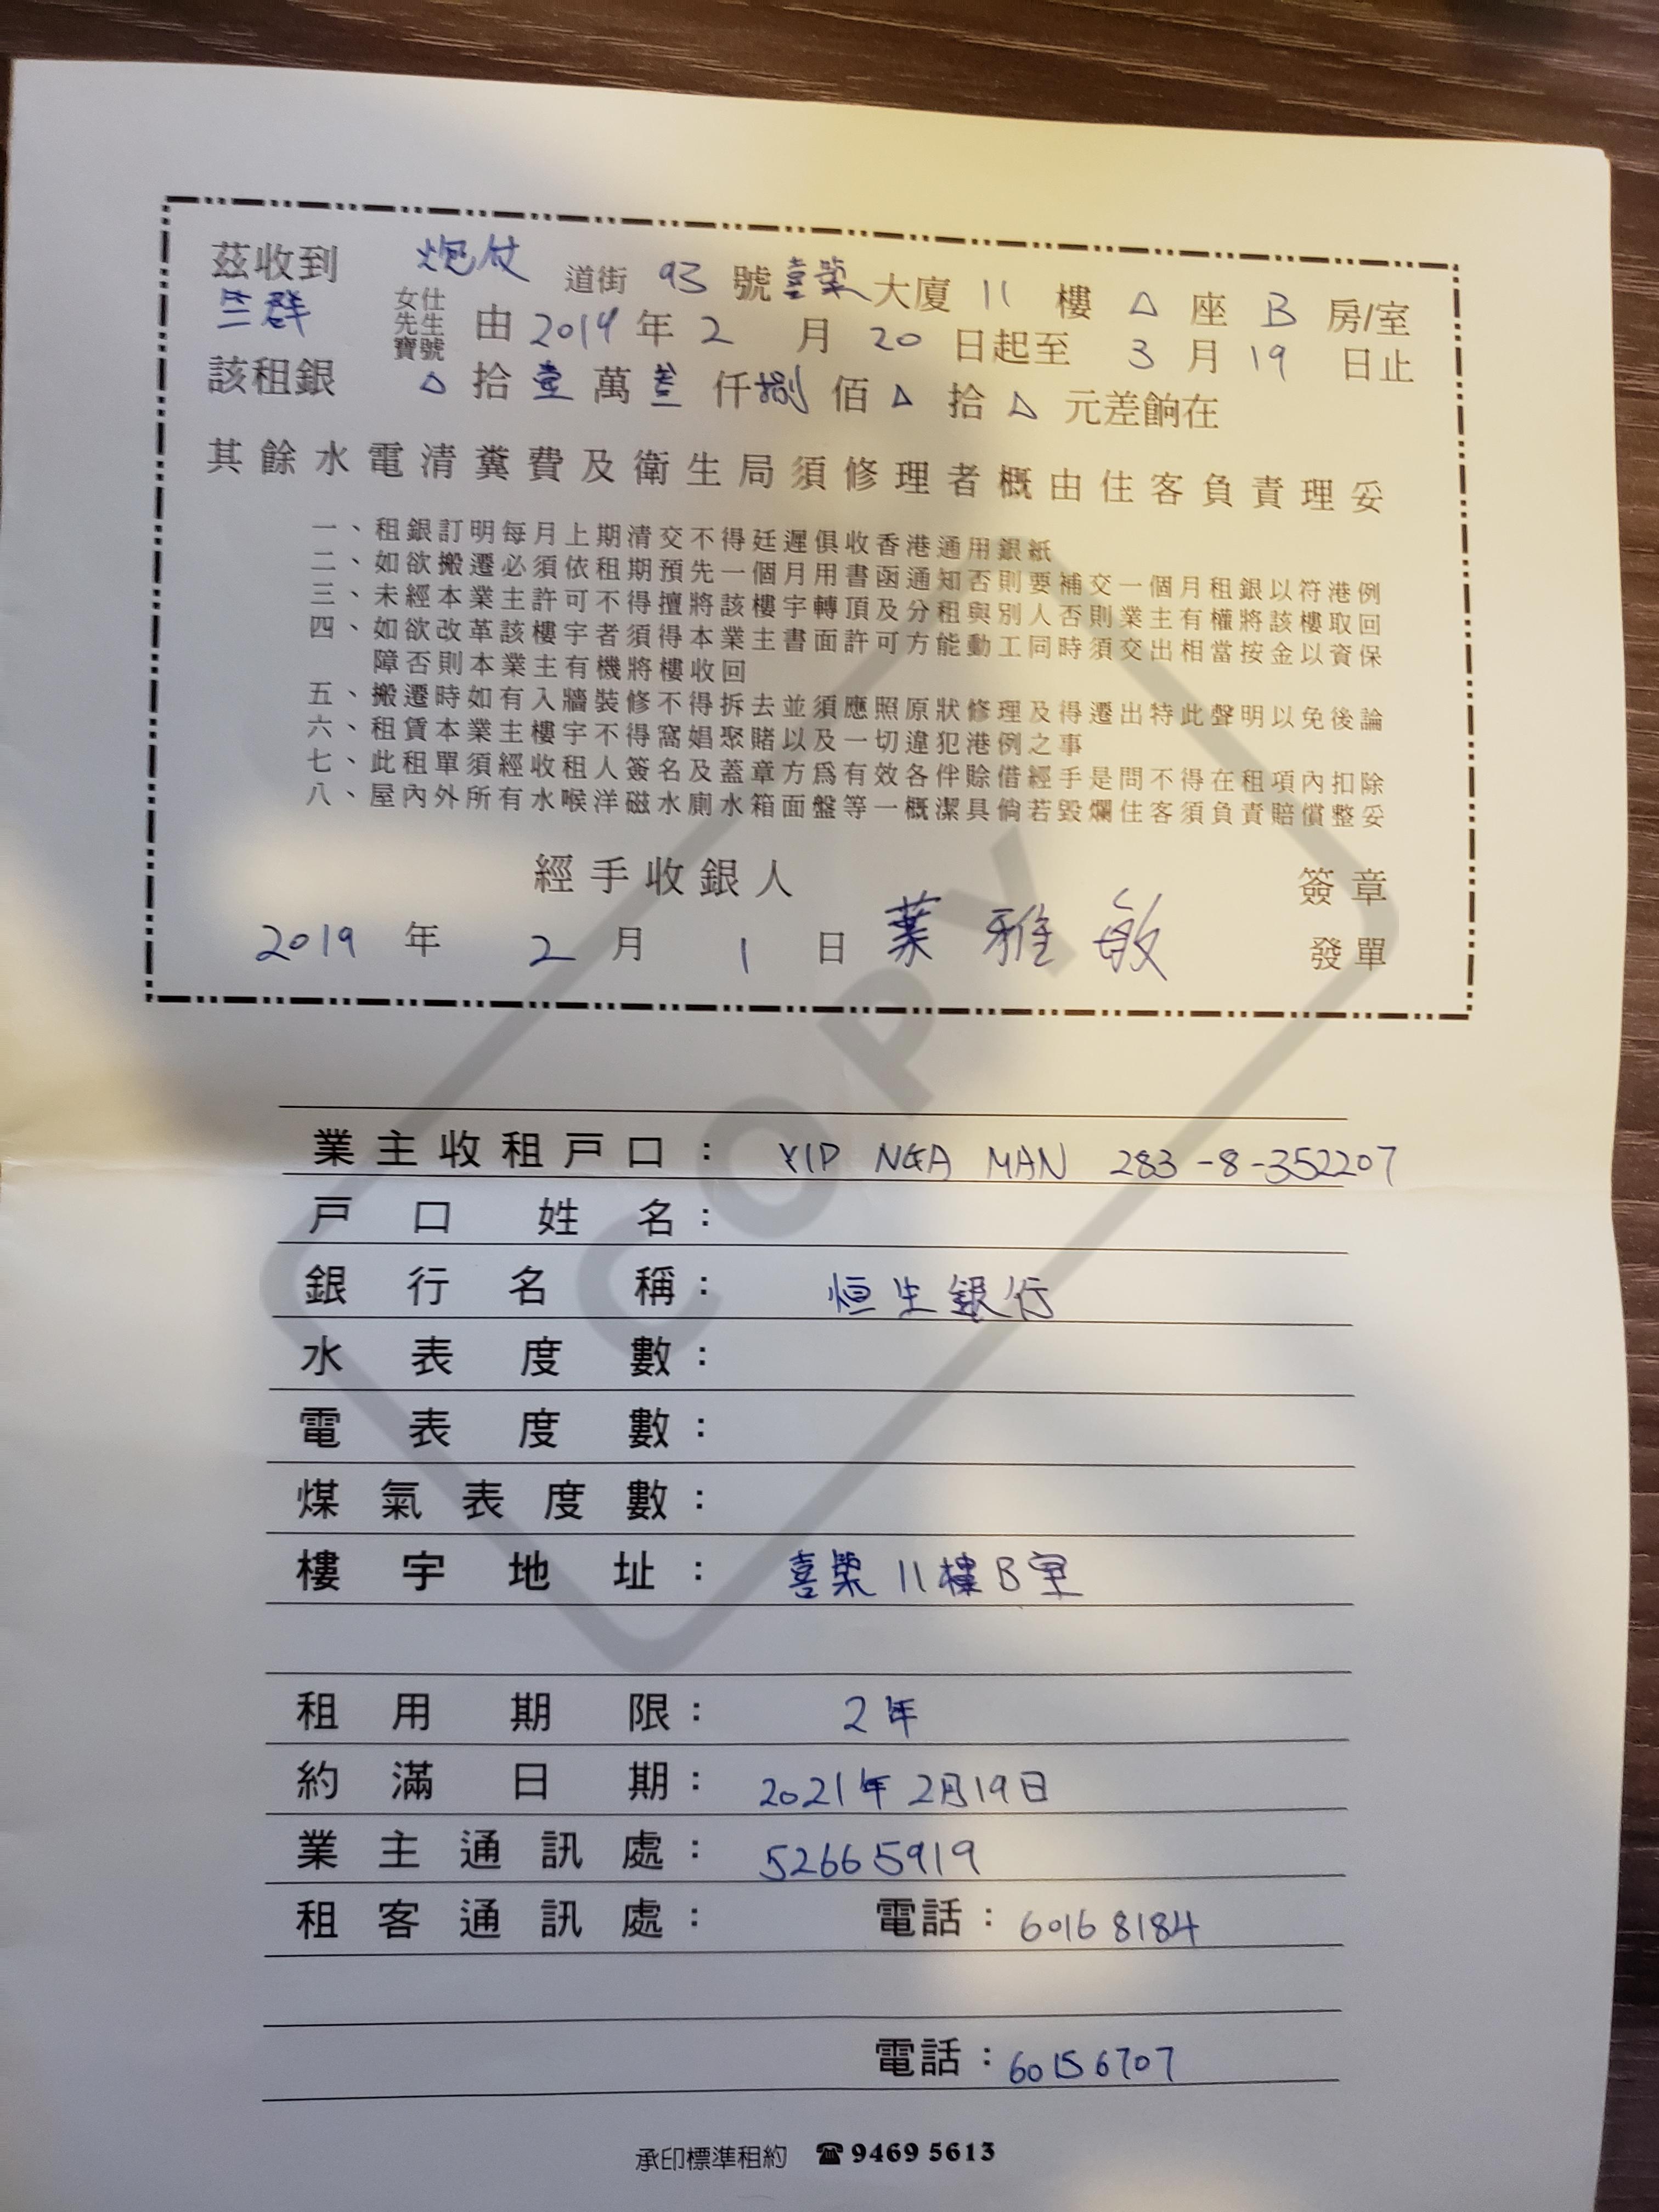 茲收到 炮仗 道街 93 號 喜榮 大廈 11 樓 △ 座 B 房/室
竺群 女仕 先生 寶號 由 2019 年 2 月 20 日起至 3 月 19 日止
該租銀 △ 拾 壹 萬 仟 捌 佰 △ 拾 △ 元差餉在
其餘水電清糞費及衛生局須修理者概由住客負責理妥
一、租銀訂明每月上期清交不得廷遲俱收香港通用銀紙
二、如欲搬遷必須依租期預先一個月用書函通知否則要補交一個月租銀以符港例
三、未經本業主許可不得擅將該樓宇轉頂及分租與別人否則業主有權將該樓取回
四、如欲改革該樓宇者須得本業主書面許可方能動工同時須交出相當按金以資保
障否則本業主有機將樓收回
五、搬遷時如有入牆裝修不得拆去並須應照原狀修理及得遷出特此聲明以免後論
六、租賃本業主樓宇不得窩娼聚賭以及一切違犯港例之事
七、此租單須經收租人簽名及蓋章方爲有效各伴賒借經手是問不得在租項內扣除
八、屋內外所有水喉洋磁水廁水箱面盤等一概潔具倘若毀爛住客須負責賠償整妥
經手收銀人 簽章
2019 年 2 月 1 日 葉雅敏 發單
COPY
業主收租戶口： YIP NGA MAN 283-8-352207
戶口姓名：
銀行名稱： 恒生銀行
水表度數：
電表度數：
煤氣表度數：
樓宇地址： 喜榮11樓B室
租用期限： 2年
約滿日期： 2021年2月19日
業主通訊處： 52665919
租客通訊處： 電話： 60168184
電話： 60156707
承印標準租約 ☎ 9469 5613